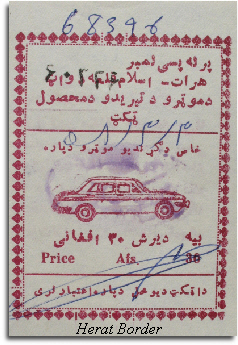 68396
پرله پسې نمبر
هرات - اسلام قلعه
دموټرو د تیریدو دمحصول
ټکټ
خاص وګړندیو موټرو دپاره
بیه دیرش ۳۰ افغانی
Price Afs. 30
دا ټکټ دیو ځلی دپاره اعتبار لری
Herat Border